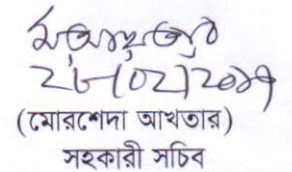 ২৮/০২/২০১৭
(মোরশেদা আখতার)
সহকারী সচিব